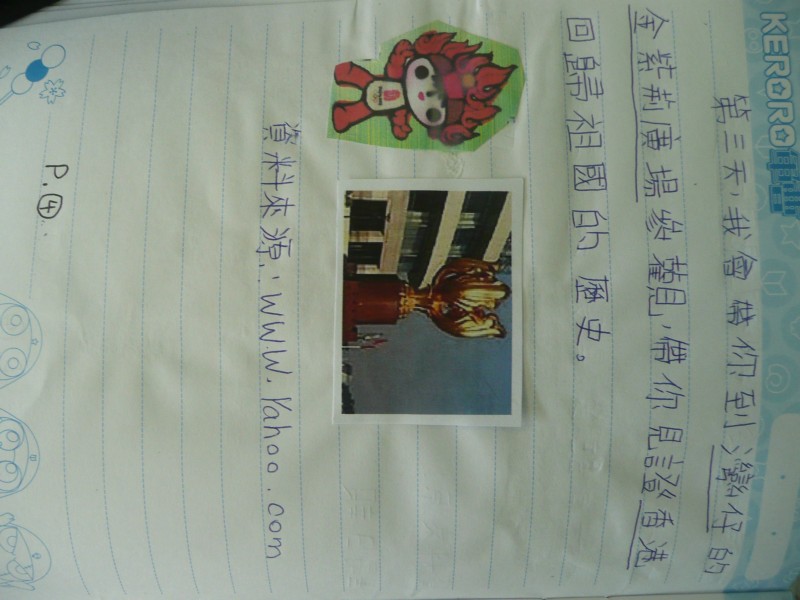 KERORO軍曹
第三天，我會帶你到灣仔的
金紫荊廣場參觀，帶你見證香港
回歸祖國的歷史。
資料來源：www.Yahoo.com
P.④